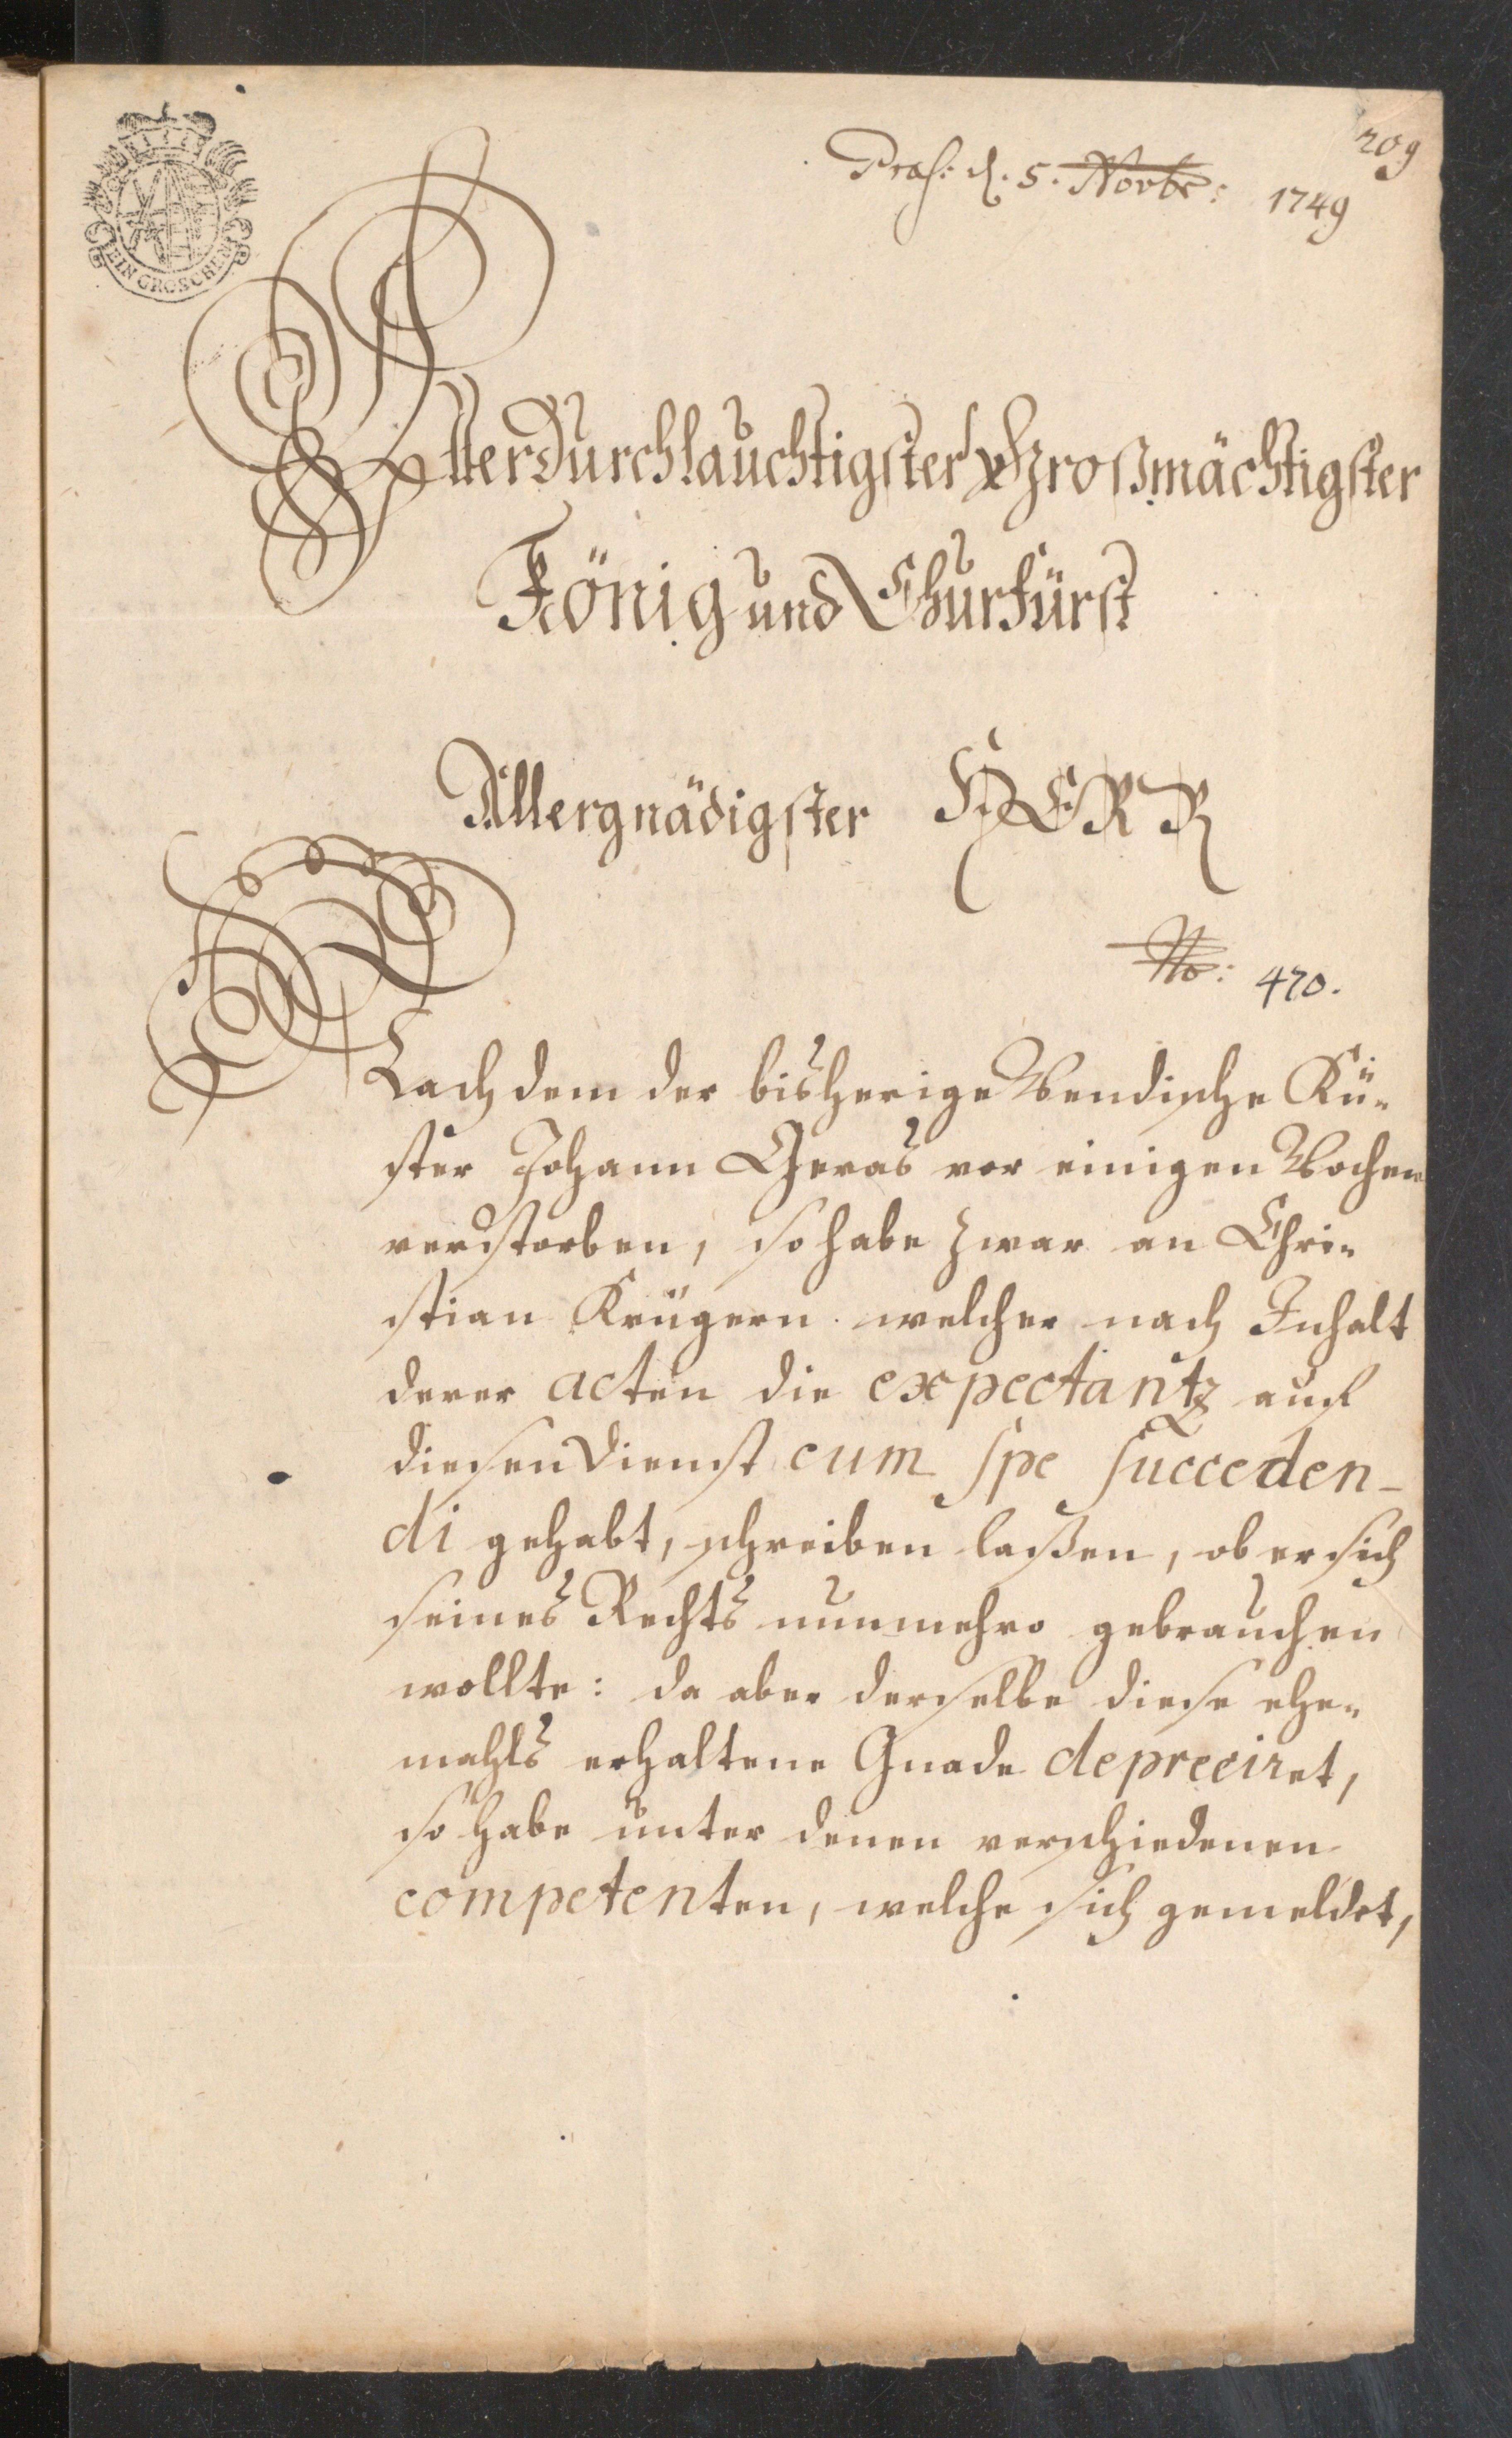 209
Præs: d. 5. Novbr: 1749
EIN GROSCHEN
Allerdurchlauchtigster Großmächtigster
König und Churfürst
Allergnädigster HERR
No: 470.
Nachdem der bisherige Wendische Kü-
ster Johann Geras vor einigen Wochen
verstorben, so habe zwar an Chri-
stian Krügern welcher nach Inhalt
derer acten die expectantz auf
diesen Dienst cum spe succeden-
di gehabt, schreiben laßen, ob er sich
seines Rechts nunmehro gebrauchen
wollte: da aber derselbe diese ehe-
mahls erhaltene Gnade depreciret,
so habe unter denen verschiedenen
competenten, welche sich gemeldet,